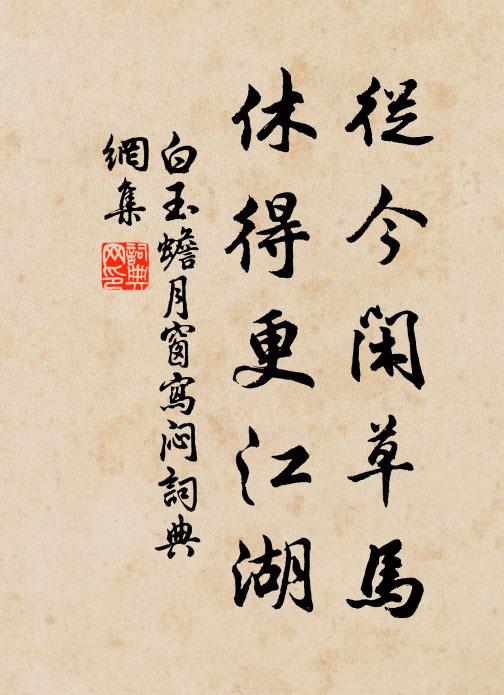 從今閑草馬
休得更江湖
白玉蟾月窗寫悶詞典
網集
詞典
网印